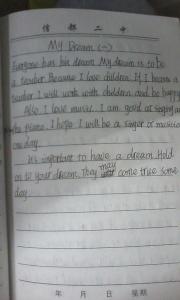 信都二中
My Dream (一)
Everyone has his dream. My dream is to be
a teacher. Because I love children. If I become a
teacher I will work with children and be happy
Also I love music. I am good at singing and
the piano. I hope I will be a singer or musician
one day.
It's important to have a dream. Hold
on to your dream. They may come true some
day.
年 月 日 星期